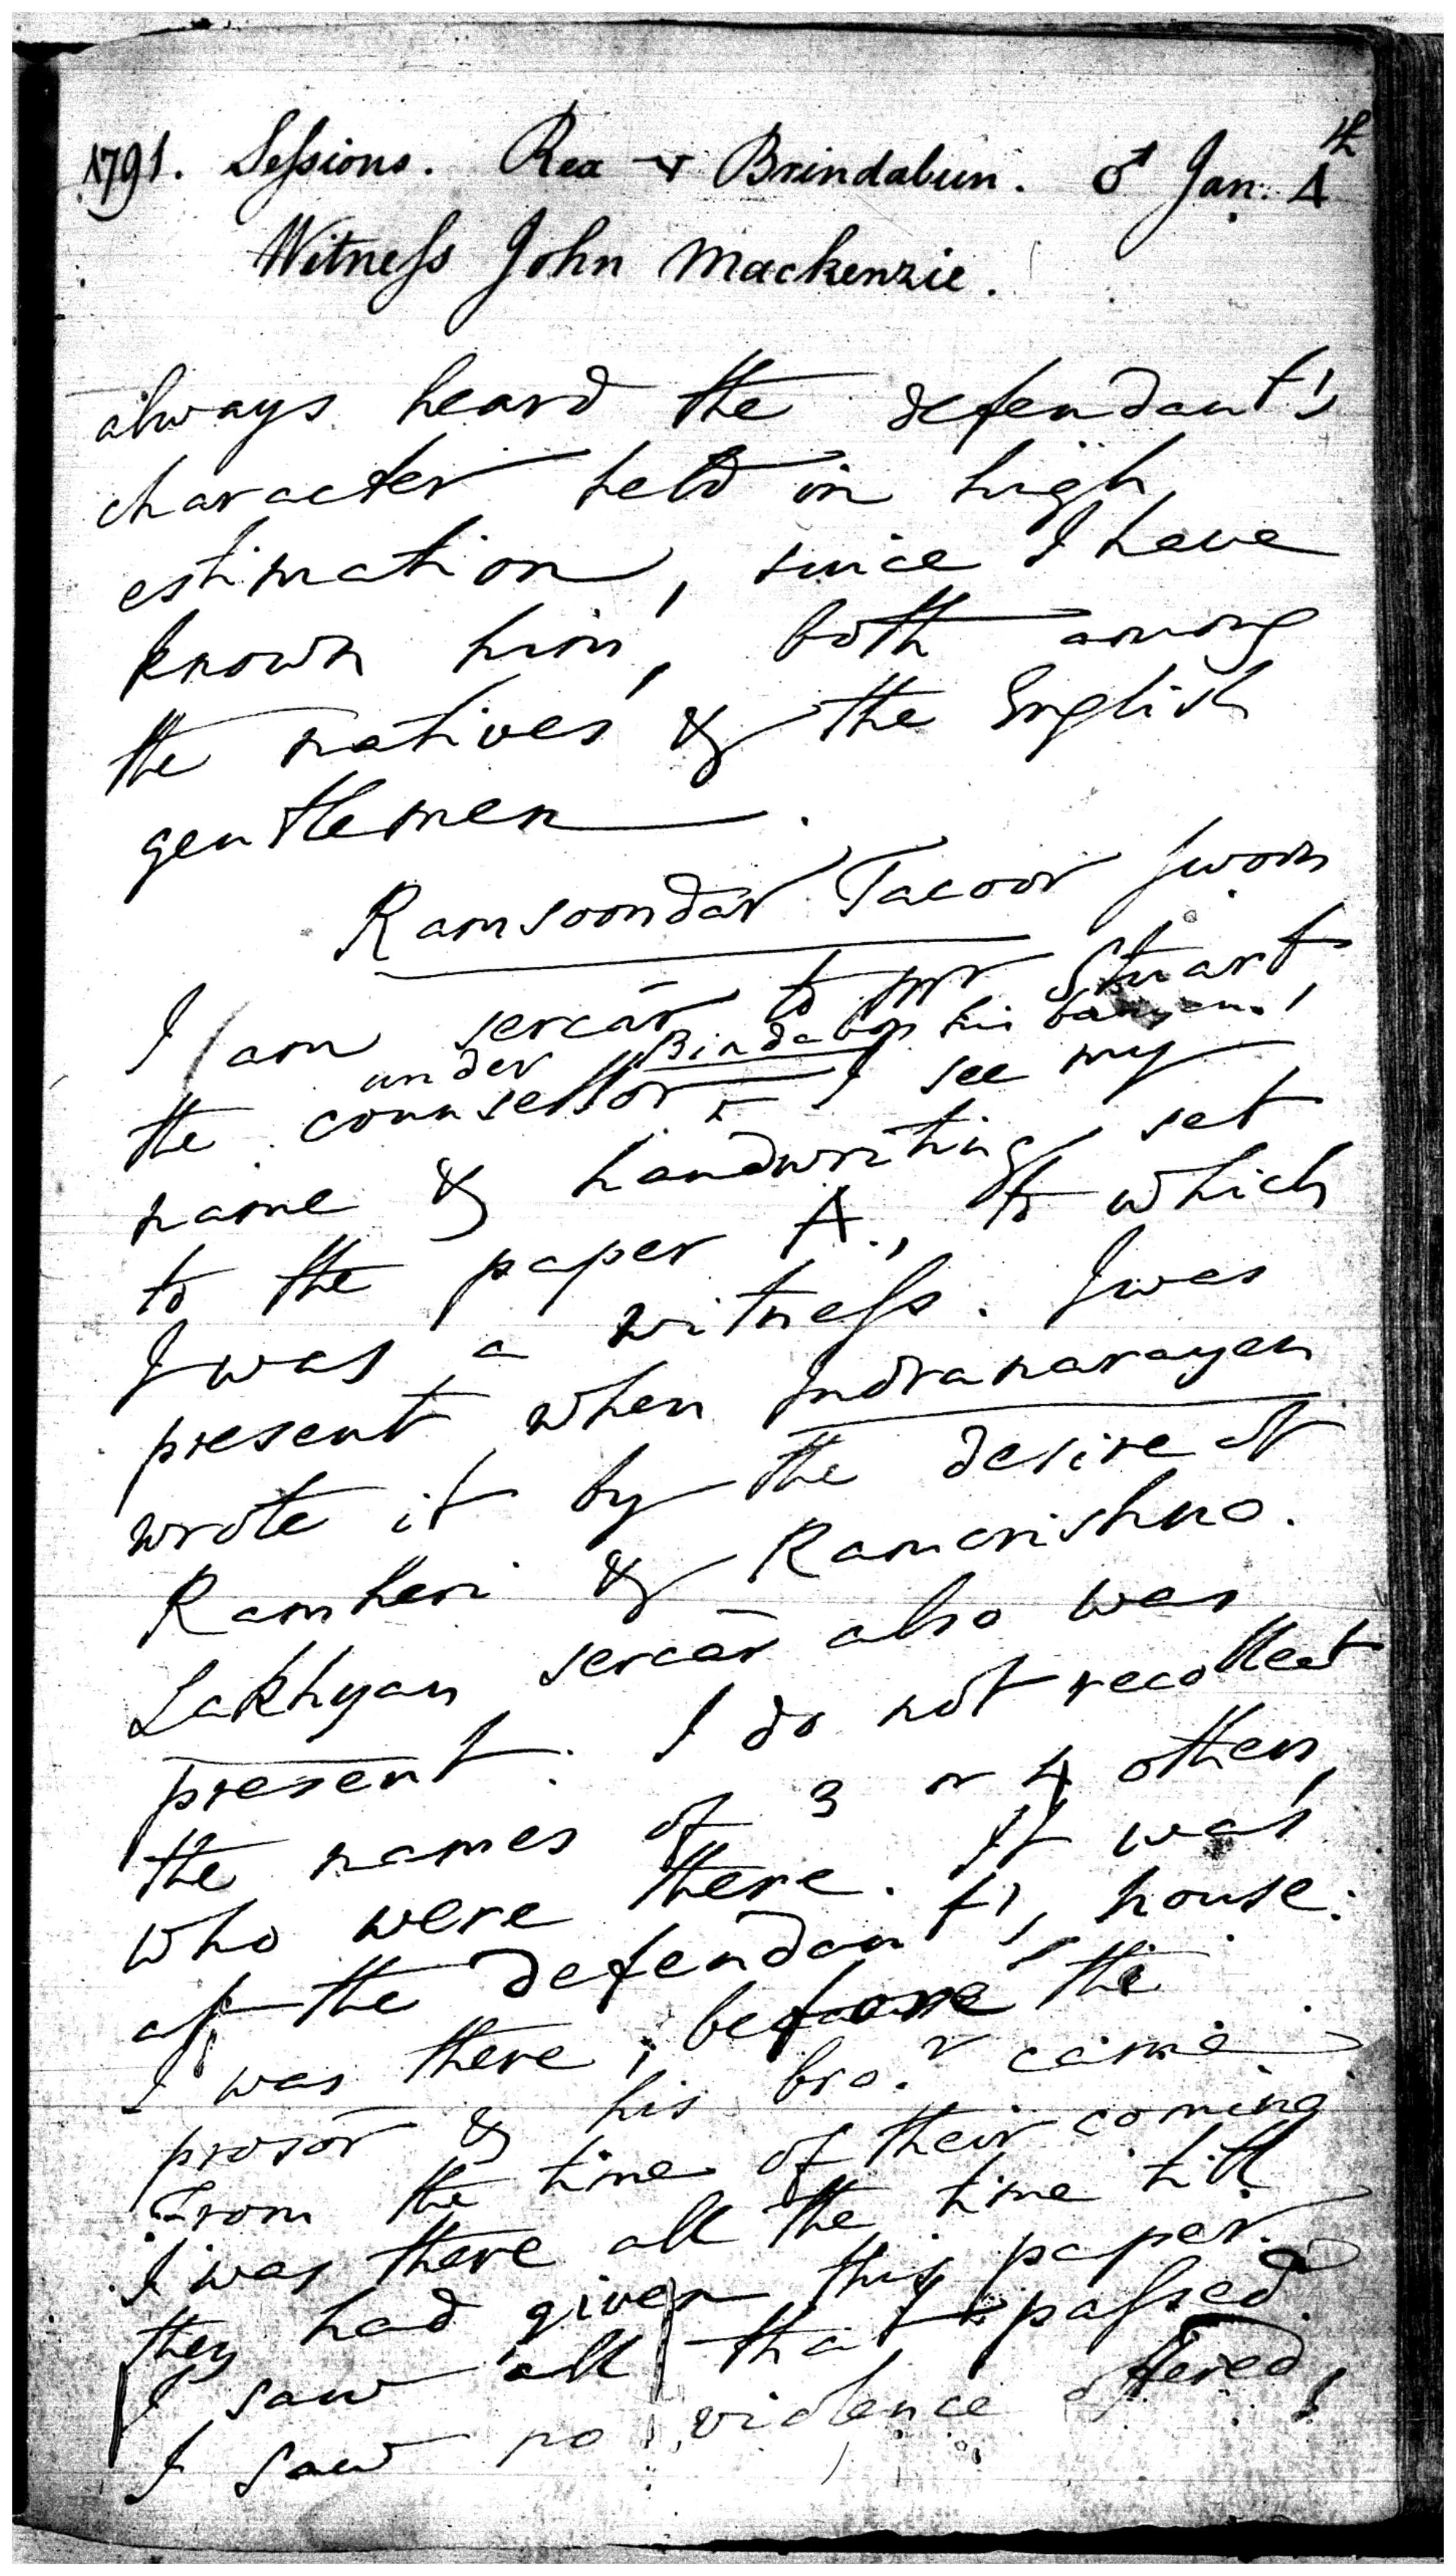 1791. Sessions. Rex v Brindabun. ♂ Jan. 4th
Witness John Mackenzie.
always heard the defendant's
character held in high
estimation, since I have
known him, both among
the natives & the English
gentlemen.
Ramsoondar Tacoor sworn
I am sercar to mr Stuart,
under Bindabon his banyan.
the counsellor. I see my
name & handwriting set
to the paper A., to which
I was a witness. I was
present when Indranarayen
wrote it by the desire of
Ramheri & Ramcrishno.
Lakhyan sercar also was
present. I do not recollect
the names of 3 or 4 others,
who were there. It was
at the defendant's house:
I was there, before the
prosor & his bror came.
From the time of their coming
I was there all the time till
they had given this paper.
I saw all that passed.
I saw no violence offered,